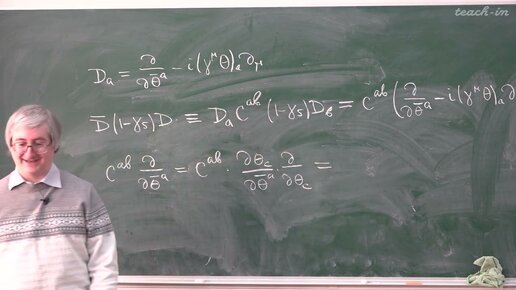 teach-in
D_a = ∂/∂θ̄^a - i(γ^μ θ)_a ∂_μ
D̄(1-γ_5)D ≡ D_a C^{ab} (1-γ_5) D_b = C^{ab} (∂/∂θ̄^a - i(γ^μ θ)_a ∂
C^{ab} ∂/∂θ̄^a = C^{ab} · ∂θ_c/∂θ̄^a · ∂/∂θ_c =